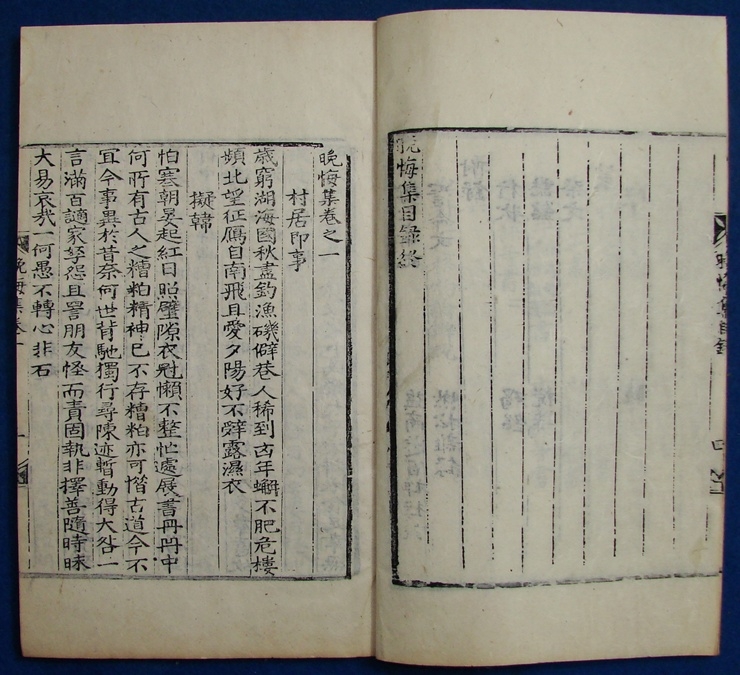 晩悔集目錄終
晩悔集卷之一
村居即事
歲窮湖海國秋盡釣漁磯僻巷人稀到凶年蠏不肥危樓
頻北望征鴈自南飛且愛夕陽好不辤露濕衣
擬韓
怕寒朝晏起紅日照壁隙衣冠懶不整忙處展書冊冊中
何所有古人之糟粕精神已不存糟粕亦可惜古道今不
冝今事異於昔奈何世背馳獨行尋陳迹暫動得大咎一
言滿百謫家孥怨且詈朋友怪而責固執非擇善隨時昧
大易哀我一何愚不轉心非石
晩悔集卷一